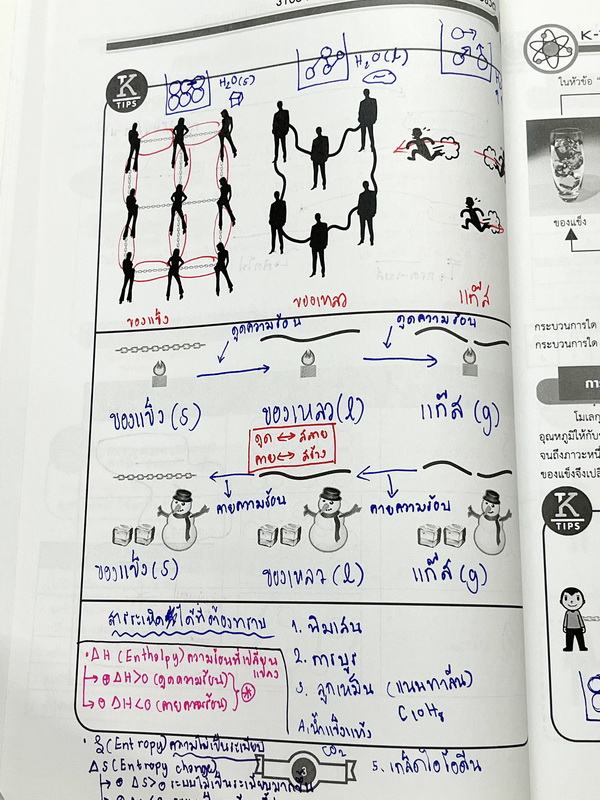 K
TIPS
H₂O(s)
H₂O(l)
ของแข็ง
ของเหลว
แก๊ส
ดูดความร้อน
ดูดความร้อน
ของแข็ง (s)
ของเหลว (l)
แก๊ส (g)
ดูด ↔ สลาย
คาย ↔ สร้าง
คายความร้อน
คายความร้อน
ของแข็ง (s)
ของเหลว (l)
แก๊ส (g)
สารระเหิดได้ที่ต้องทราบ
1. พิมเสน
2. การบูร
3. ลูกเหม็น (แนนทาลีน)
C₁₀H₈
4. น้ำแข็งแห้ง
CO₂
5. เกล็ดไอโอดีน
• ΔH (Enthalpy) ความร้อนที่เปลี่ยนแปลง
→ ⊕ ΔH>0 (ดูดความร้อน)
→ ⊖ ΔH<0 (คายความร้อน)
• S (Entropy) ความไม่เป็นระเบียบ
ΔS (Entropy change)
3
K-
ในหัวข้อ
ของแข็ง
กระบวนการใด
กระบวนการใด
โมเลกุ
อุณหภูมิให้กับ
จนถึงภาวะหนึ่
ของแข็งจึงเปลี่
K
TIPS